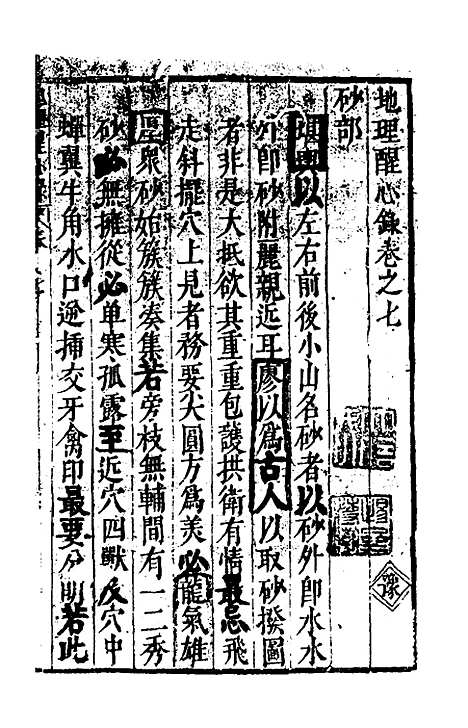 地理醒心錄卷之七
砂部
堪輿以左右前後小山名砂者以砂外卽水水
外卽砂附麗親近耳廖以爲古人以取砂撥圖
者非是大抵欲其重重包護拱衛有情最忌飛
走斜擺穴上見者務要尖圓方爲美必龍氣雄
衆砂始簇簇湊集若旁枝無輔間有一二秀
砂必無擁從必单寒孤露至近穴四獸及穴中
蟬翼牛角水口遊揷交牙禽印最要分明若此
豫